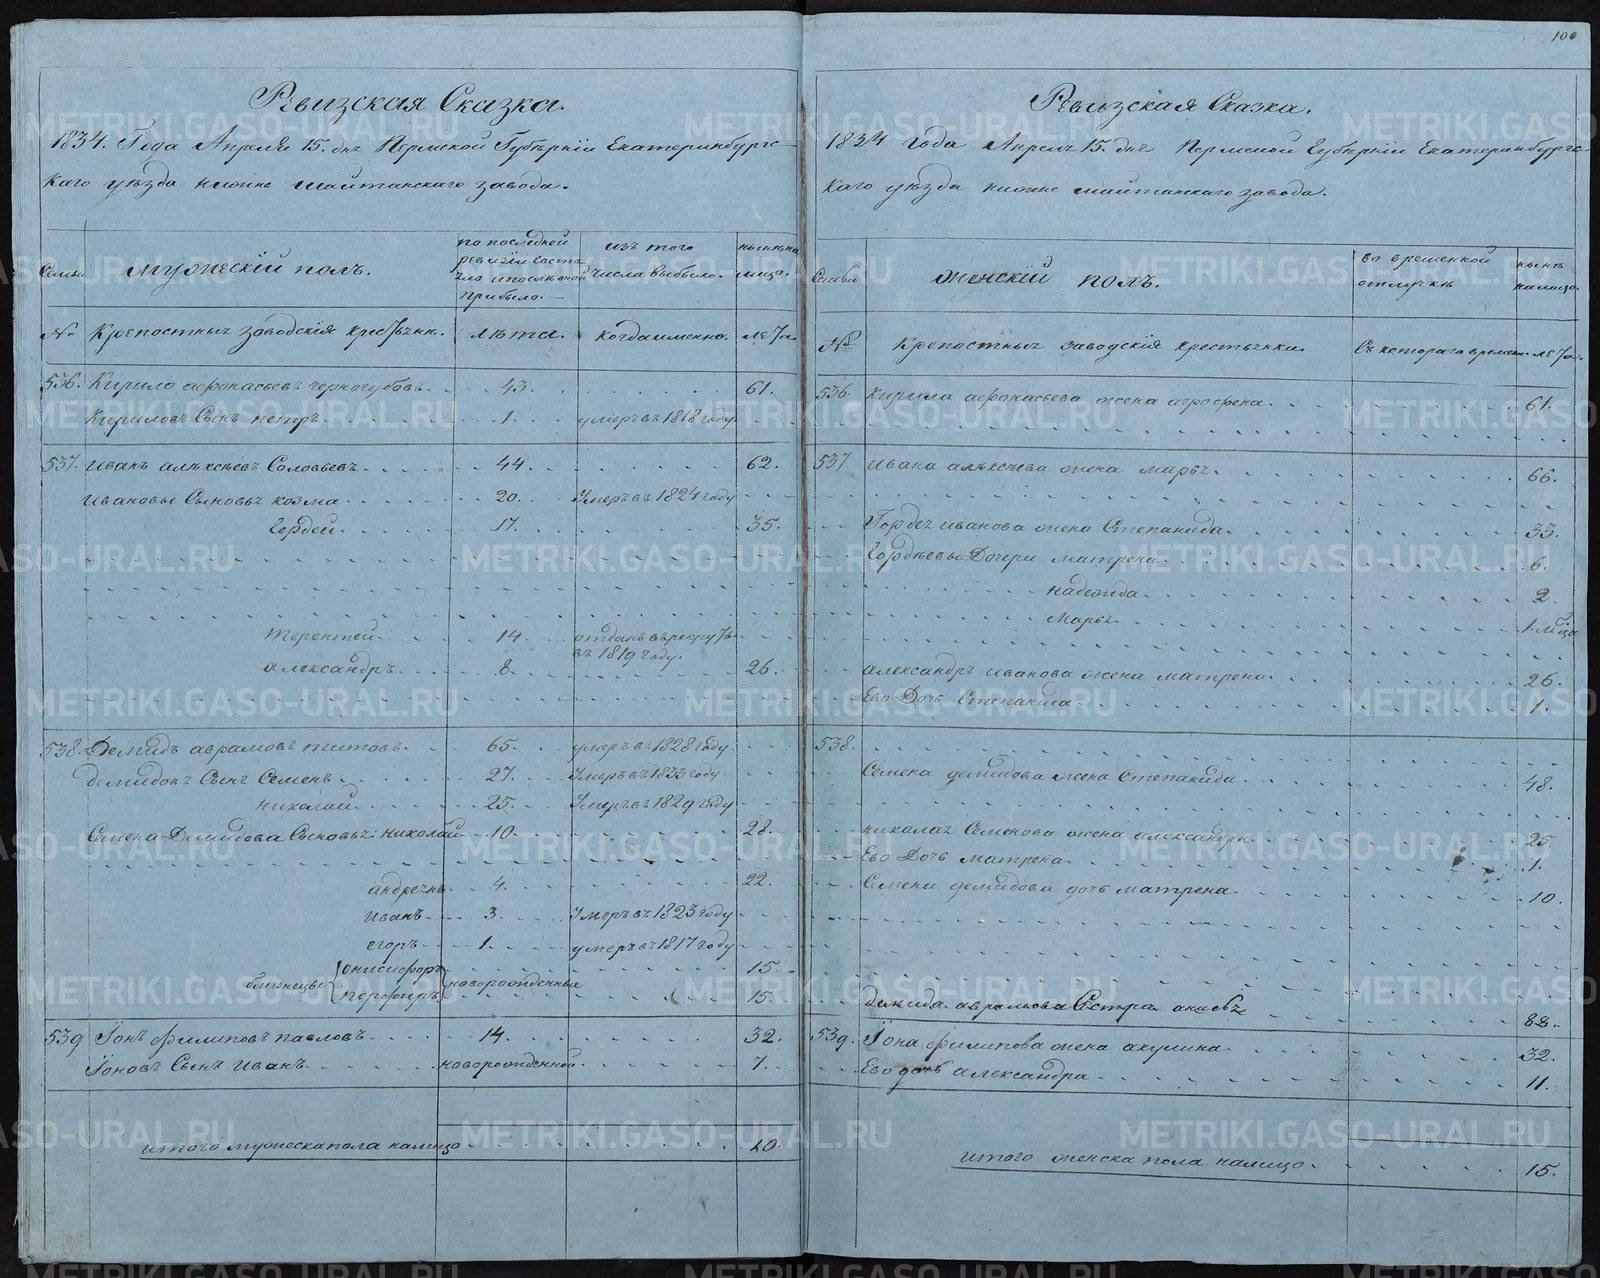 100
Ревизская Сказка.
1834. Года Апреля 15. дня Пермской Губѣрніи Екатеринбургс-
каго уѣзда нижне шайтанскаго завода.
Семьи
мужескій полъ.
по последной ревизіи состояло и после оной прибыло.
изъ того числа выбыло.
ныне на лицо.
№ Крепостныхъ заводскія крестьяне. лѣта. когда именно. лета
536. Кирило афонасьевъ черногубовъ 43. 61.
Кириловъ Сынъ петръ 1. умеръ въ 1818 году
537. иванъ алексѣевъ Соловьевъ 44. 62.
ивановы Сыновья козма 20. Умеръ въ 1824 году
Гордей 17. 35.
терентей 14. отданъ въ рекруты
въ 1819 году.
александръ 8. 26.
538. Демидъ аврамовъ титовъ 65. умеръ въ 1828 году
демидовъ Сынъ Семенъ 27. Умеръ въ 1833 году
николай 25. Умеръ въ 1829 году
Семена Демидова Сыновья: николай 10. 28.
андреянъ 4. 22.
иванъ 3. Умеръ въ 1823 году
егоръ 1. умеръ въ 1817 году
близнецы { онисифоръ 15.
порфиръ новорожденные 15.
539 Іонъ филиповъ павловъ 14. 32.
Іоновъ Сынъ иванъ новорожденной 7.
итого мужеска пола налицо 10.
Ревизская Сказка.
1834 года Апреля 15. дня Пермской Губѣрніи Екатеринбургс-
каго уѣзда нижне шайтанскаго завода.
Семьи
женскій полъ.
во временной отлучкѣ
нынѣ налицо.
№ Крепостныхъ заводскія крестьянки. Съ котораго времени. лета.
536. Кирила афонасьева жена агрофена 61.
537 ивана алексѣева жена марья 66.
Гордея иванова жена Степанида 33.
Гордѣевы Дочери матрена 6.
надежда 2
Марья 1. м:ца
александръ иванова жена матрена 26.
Ево Дочь Степанида 1.
538.
Семена демидова жена Степанида 48.
николая Семенова жена александра 25.
Ево Дочь матрена 1.
Семена демидова дочь матрена 10.
Демида аврамова Сестра 88.
539. Іона филипова жена акулина 32.
Ево дочь александра 11.
итого женска пола налицо 15.
METRIKI.GASO-URAL.RU